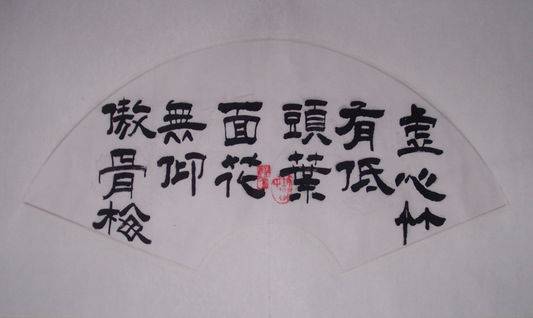 虚心竹
有低
頭葉
傲骨梅
無仰
面花